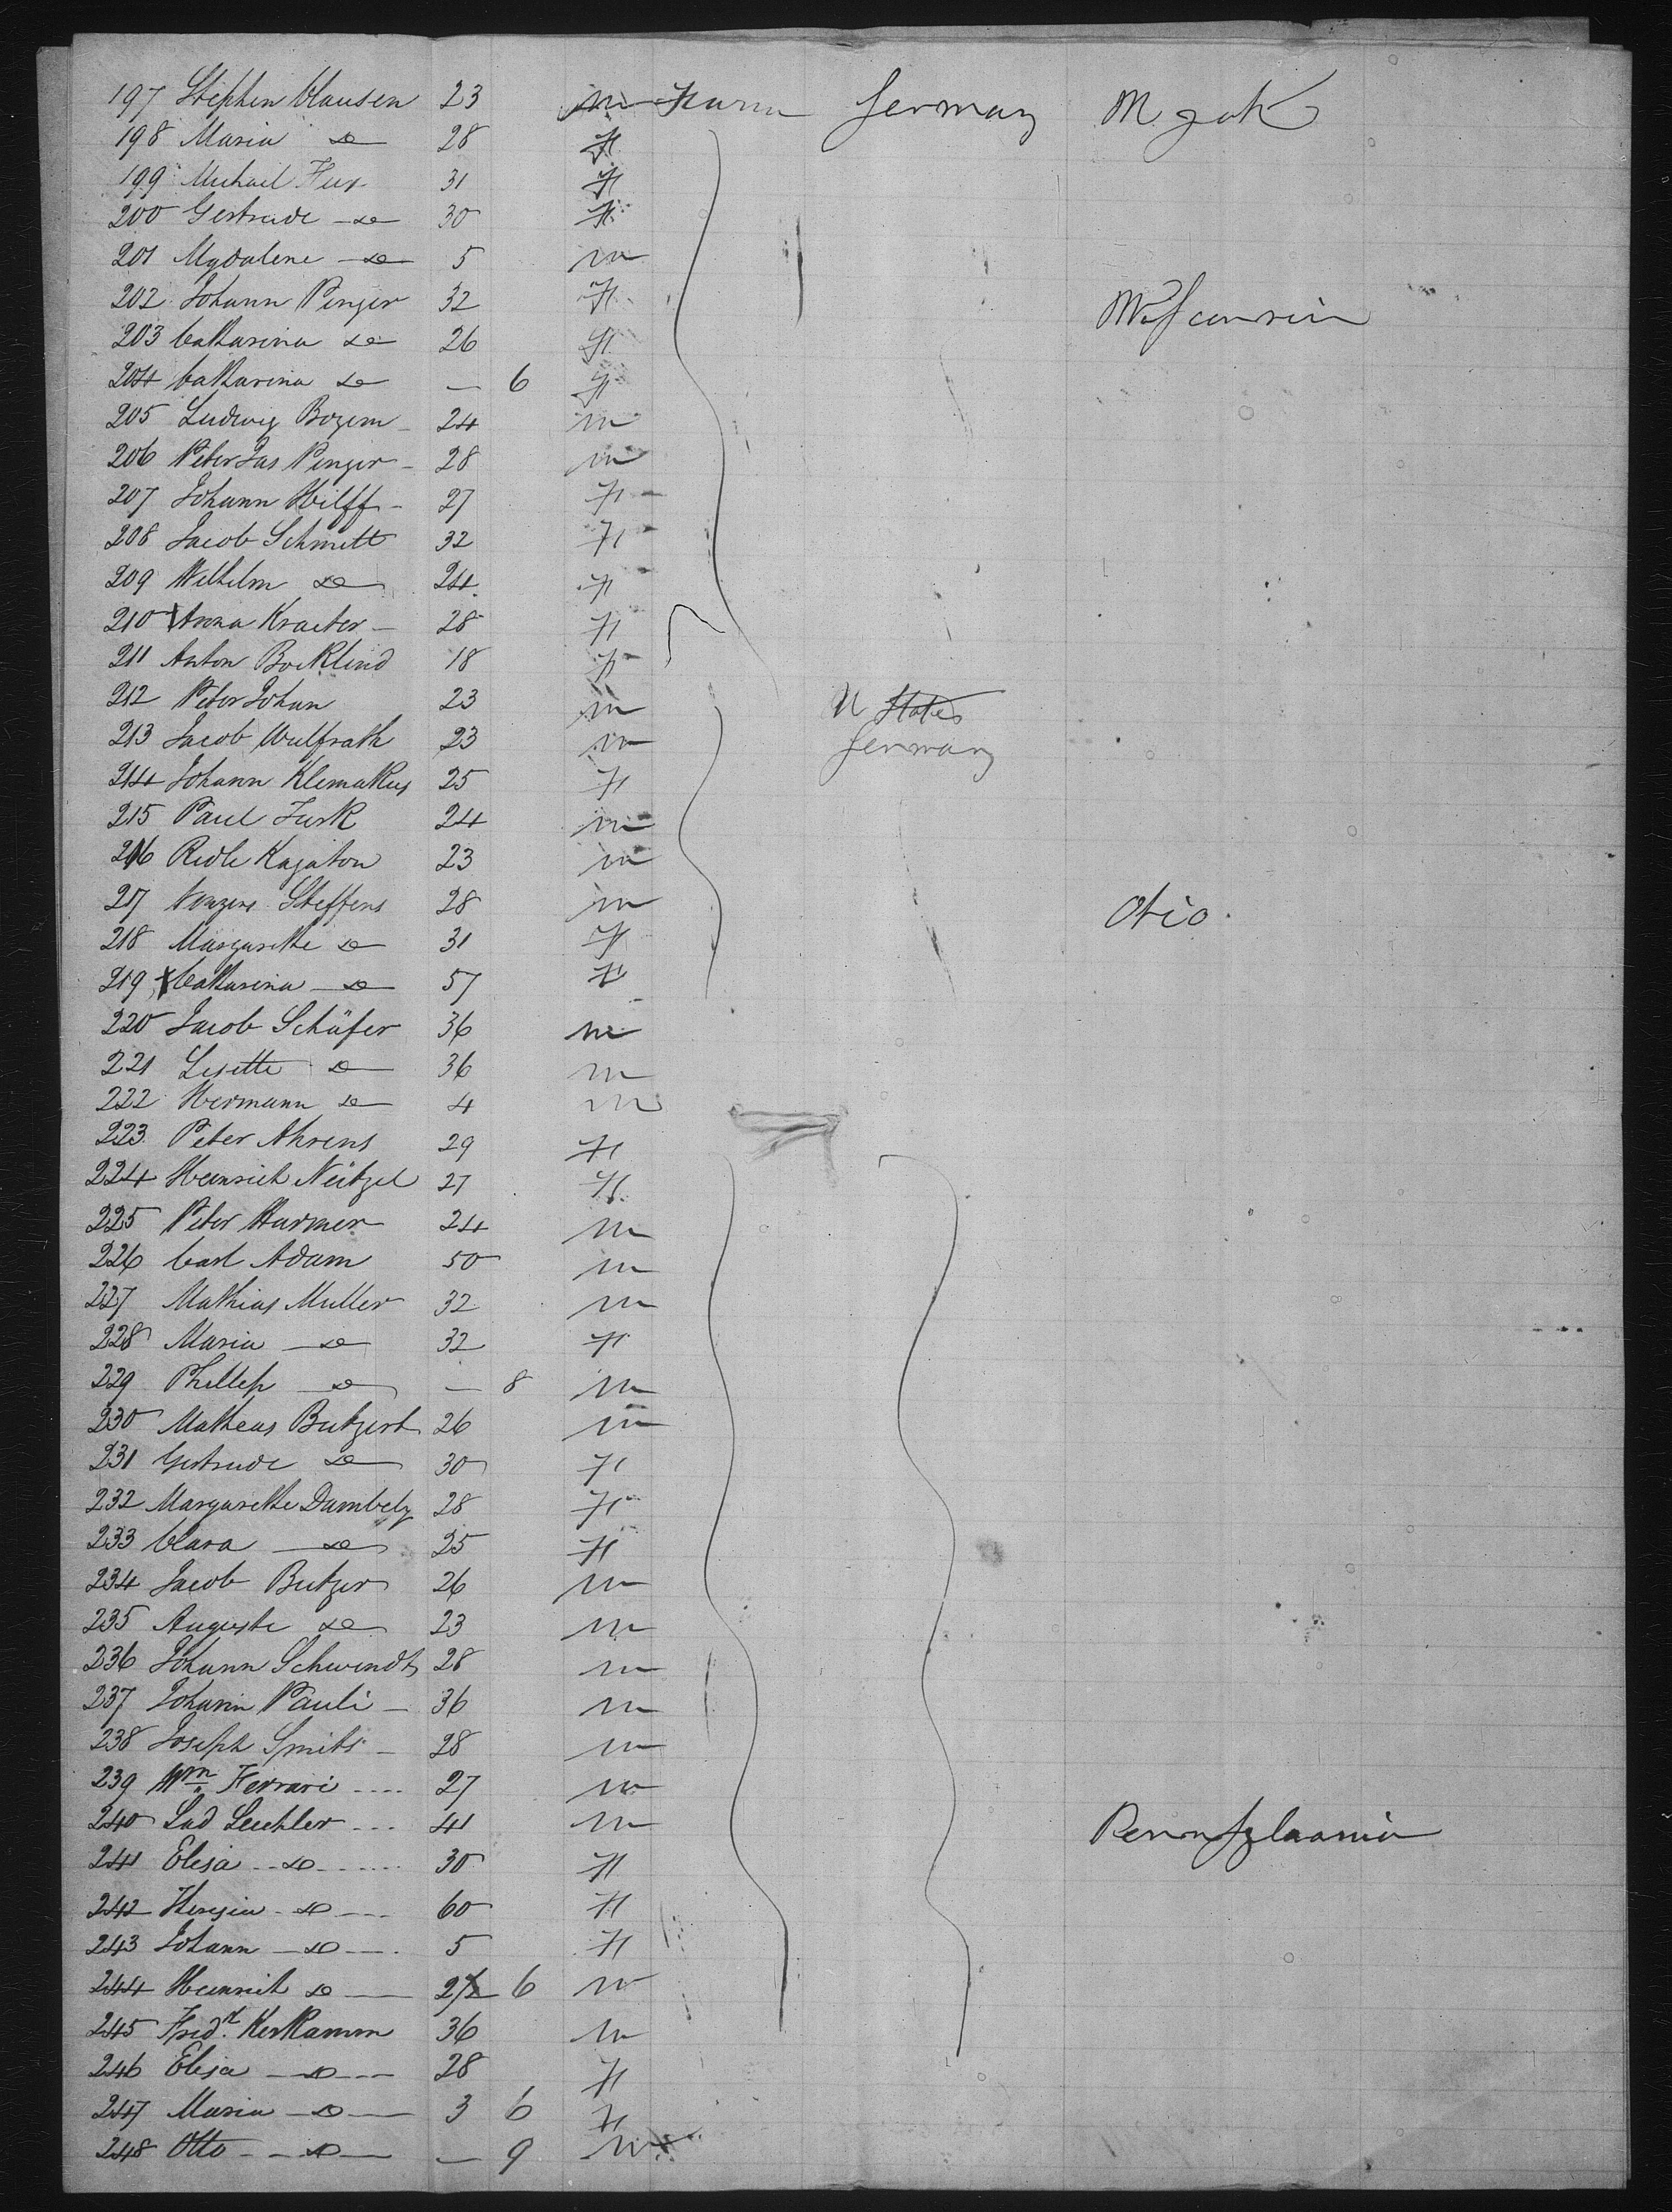 197 Stephen Clausen 23 m Farm Germany N. York
198 Maria do 28 F
199 Michael Fux 31 F
200 Gertrude do 30 F
201 Mgdalene do 5 m
202 Johann Penger 32 F Wisconsin
203 Catharina do 26 F
204 Catharina do — 6 F
205 Ludwig Bozem 24 m
206 Peter Jas Penger 28 m
207 Johann Hilff 27 F
208 Jacob Schmitt 32 F
209 Wilhelm do 24 F
210 Anna Kraeter 28 F
211 Anton Bocklind 18 F
212 Peter Johan 23 m U States
213 Jacob Wulfrath 23 m Germany
214 Johann Klemakus 25 F
215 Paul Turk 24 m
216 Redle Kajaton 23 m
217 Steffens 28 m Ohio
218 Margarethe do 31 F
219 Catharina do 57 F
220 Jacob Schäfer 36 m
221 Lesette do 36 m
222 Hermann do 4 m
223 Peter Ahrens 29 F
224 Heinrich Neitzel 27 F
225 Peter Harmer 24 m
226 Carl Adam 50 m
227 Mathias Muller 32 m
228 Maria do 32 F
229 Phillip do — 8 m
230 Matheus Butzert 26 m
231 Gertrude do 30 F
232 Margarethe Dambely 28 F
233 Clara do 25 F
234 Jacob Butzer 26 m
235 Auguste do 23 m
236 Johann Schwendt 28 m
237 Johann Pauli 36 m
238 Joseph Smits 28 m
239 Wm Ferrari 27 m
240 Lud Leuchler 41 m Pennsylvania
241 Elisa do 30 F
242 do 60 F
243 Johann do 5 F
244 Heinrich do 2 6 m
245 Fred. Kerkamm 36 m
246 Elisa do 28 F
247 Maria do 3 6 F
248 Otto do — 9 m